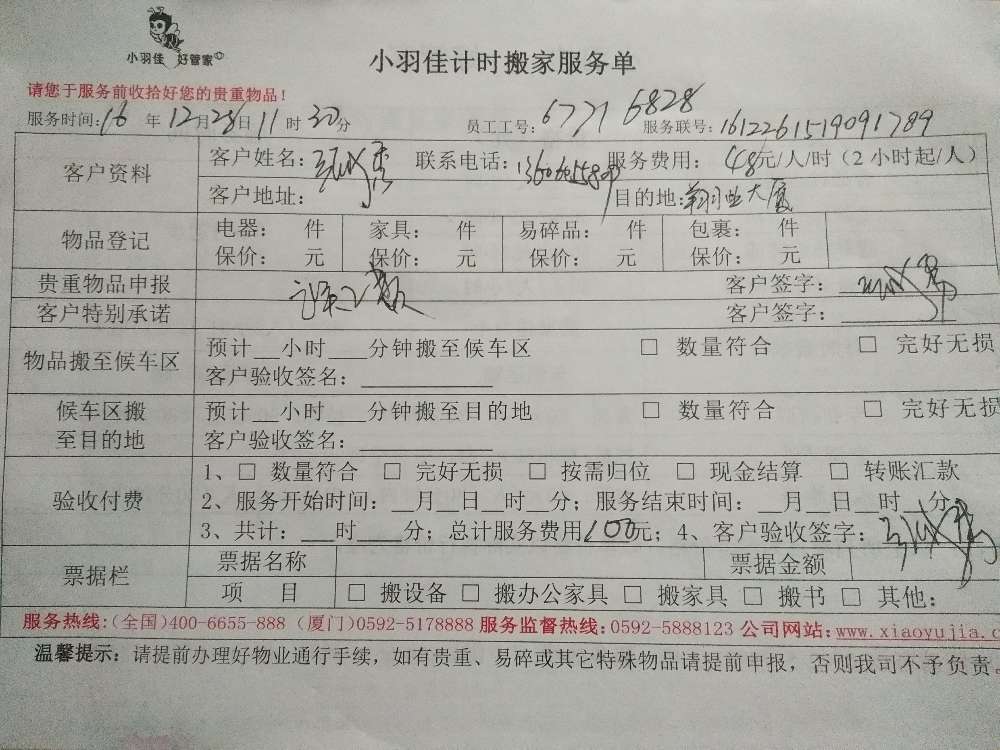 小羽佳 好管家
小羽佳计时搬家服务单
请您于服务前收拾好您的贵重物品！
服务时间：16年12月28日11时30分 员工工号：6771 6828 服务联号：1612261519091789
客户资料 客户姓名： 联系电话： 服务费用：48元/人/时（2小时起/人）
客户地址： 目的地：翔业大厦
物品登记 电器： 件 家具： 件 易碎品： 件 包裹： 件
保价： 元 保价： 元 保价： 元 保价： 元
贵重物品申报 客户签字：
客户特别承诺 客户签字：
物品搬至候车区 预计__小时___分钟搬至候车区 □ 数量符合 □ 完好无损
客户验收签名：
候车区搬至目的地 预计__小时___分钟搬至目的地 □ 数量符合 □ 完好无损
客户验收签名：
验收付费 1、□ 数量符合 □ 完好无损 □ 按需归位 □ 现金结算 □ 转账汇款
2、服务开始时间：__月__日__时__分；服务结束时间：__月__日__时__分
3、共计：___时____分；总计服务费用100元；4、客户验收签字：
票据栏 票据名称 票据金额
项 目 □ 搬设备 □ 搬办公家具 □ 搬家具 □ 搬书 □ 其他：
服务热线：(全国)400-6655-888 (厦门)0592-5178888 服务监督热线：0592-5888123 公司网站：www.xiaoyujia.c
温馨提示：请提前办理好物业通行手续，如有贵重、易碎或其它特殊物品请提前申报，否则我司不予负责。